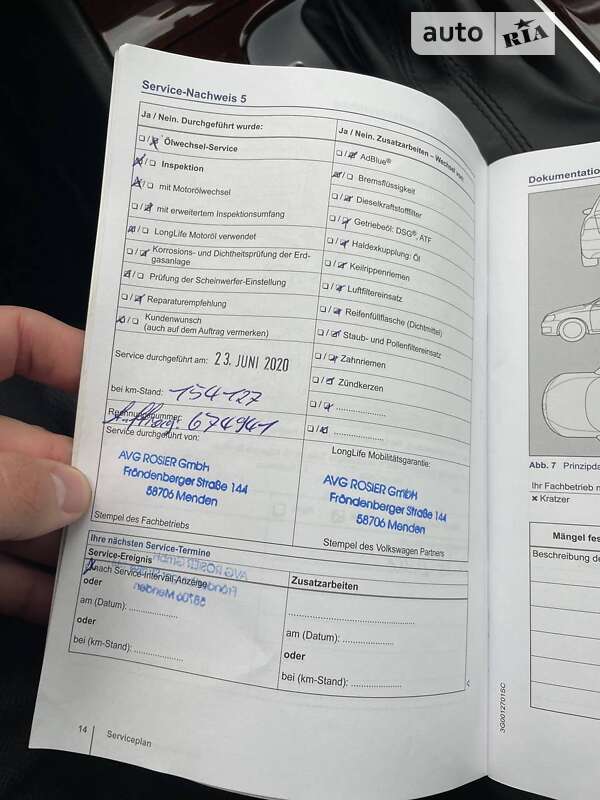 auto RIA
Service-Nachweis 5
Ja / Nein. Durchgeführt wurde:
Ölwechsel-Service
Inspektion
mit Motorölwechsel
mit erweitertem Inspektionsumfang
LongLife Motoröl verwendet
Korrosions- und Dichtheitsprüfung der Erd-
gasanlage
Prüfung der Scheinwerfer-Einstellung
Reparaturempfehlung
Kundenwunsch
(auch auf dem Auftrag vermerken)
Service durchgeführt am: 23. JUNI 2020
bei km-Stand: 154127
Rechnungsnummer:
674941
Service durchgeführt von:
AVG ROSIER GmbH
Fröndenberger Straße 144
58706 Menden
Stempel des Fachbetriebs
Ja / Nein. Zusatzarbeiten – Wechsel von:
AdBlue®
Bremsflüssigkeit
Dieselkraftstofffilter
Getriebeöl: DSG®, ATF
Haldexkupplung: Öl
Keilrippenriemen
Luftfiltereinsatz
Reifenfüllflasche (Dichtmittel)
Staub- und Pollenfiltereinsatz
Zahnriemen
Zündkerzen
LongLife Mobilitätsgarantie:
AVG ROSIER GmbH
Fröndenberger Straße 144
58706 Menden
Stempel des Volkswagen Partners
Ihre nächsten Service-Termine
Service-Ereignis
nach Service-Intervall-Anzeige
oder
am (Datum): ....................
oder
bei (km-Stand): ....................
Zusatzarbeiten
am (Datum): ....................
oder
bei (km-Stand): ....................
14 Serviceplan
Dokumentatio
Abb. 7 Prinzipda
Ihr Fachbetrieb n
× Kratzer
Mängel fes
Beschreibung de
3G0012701SC